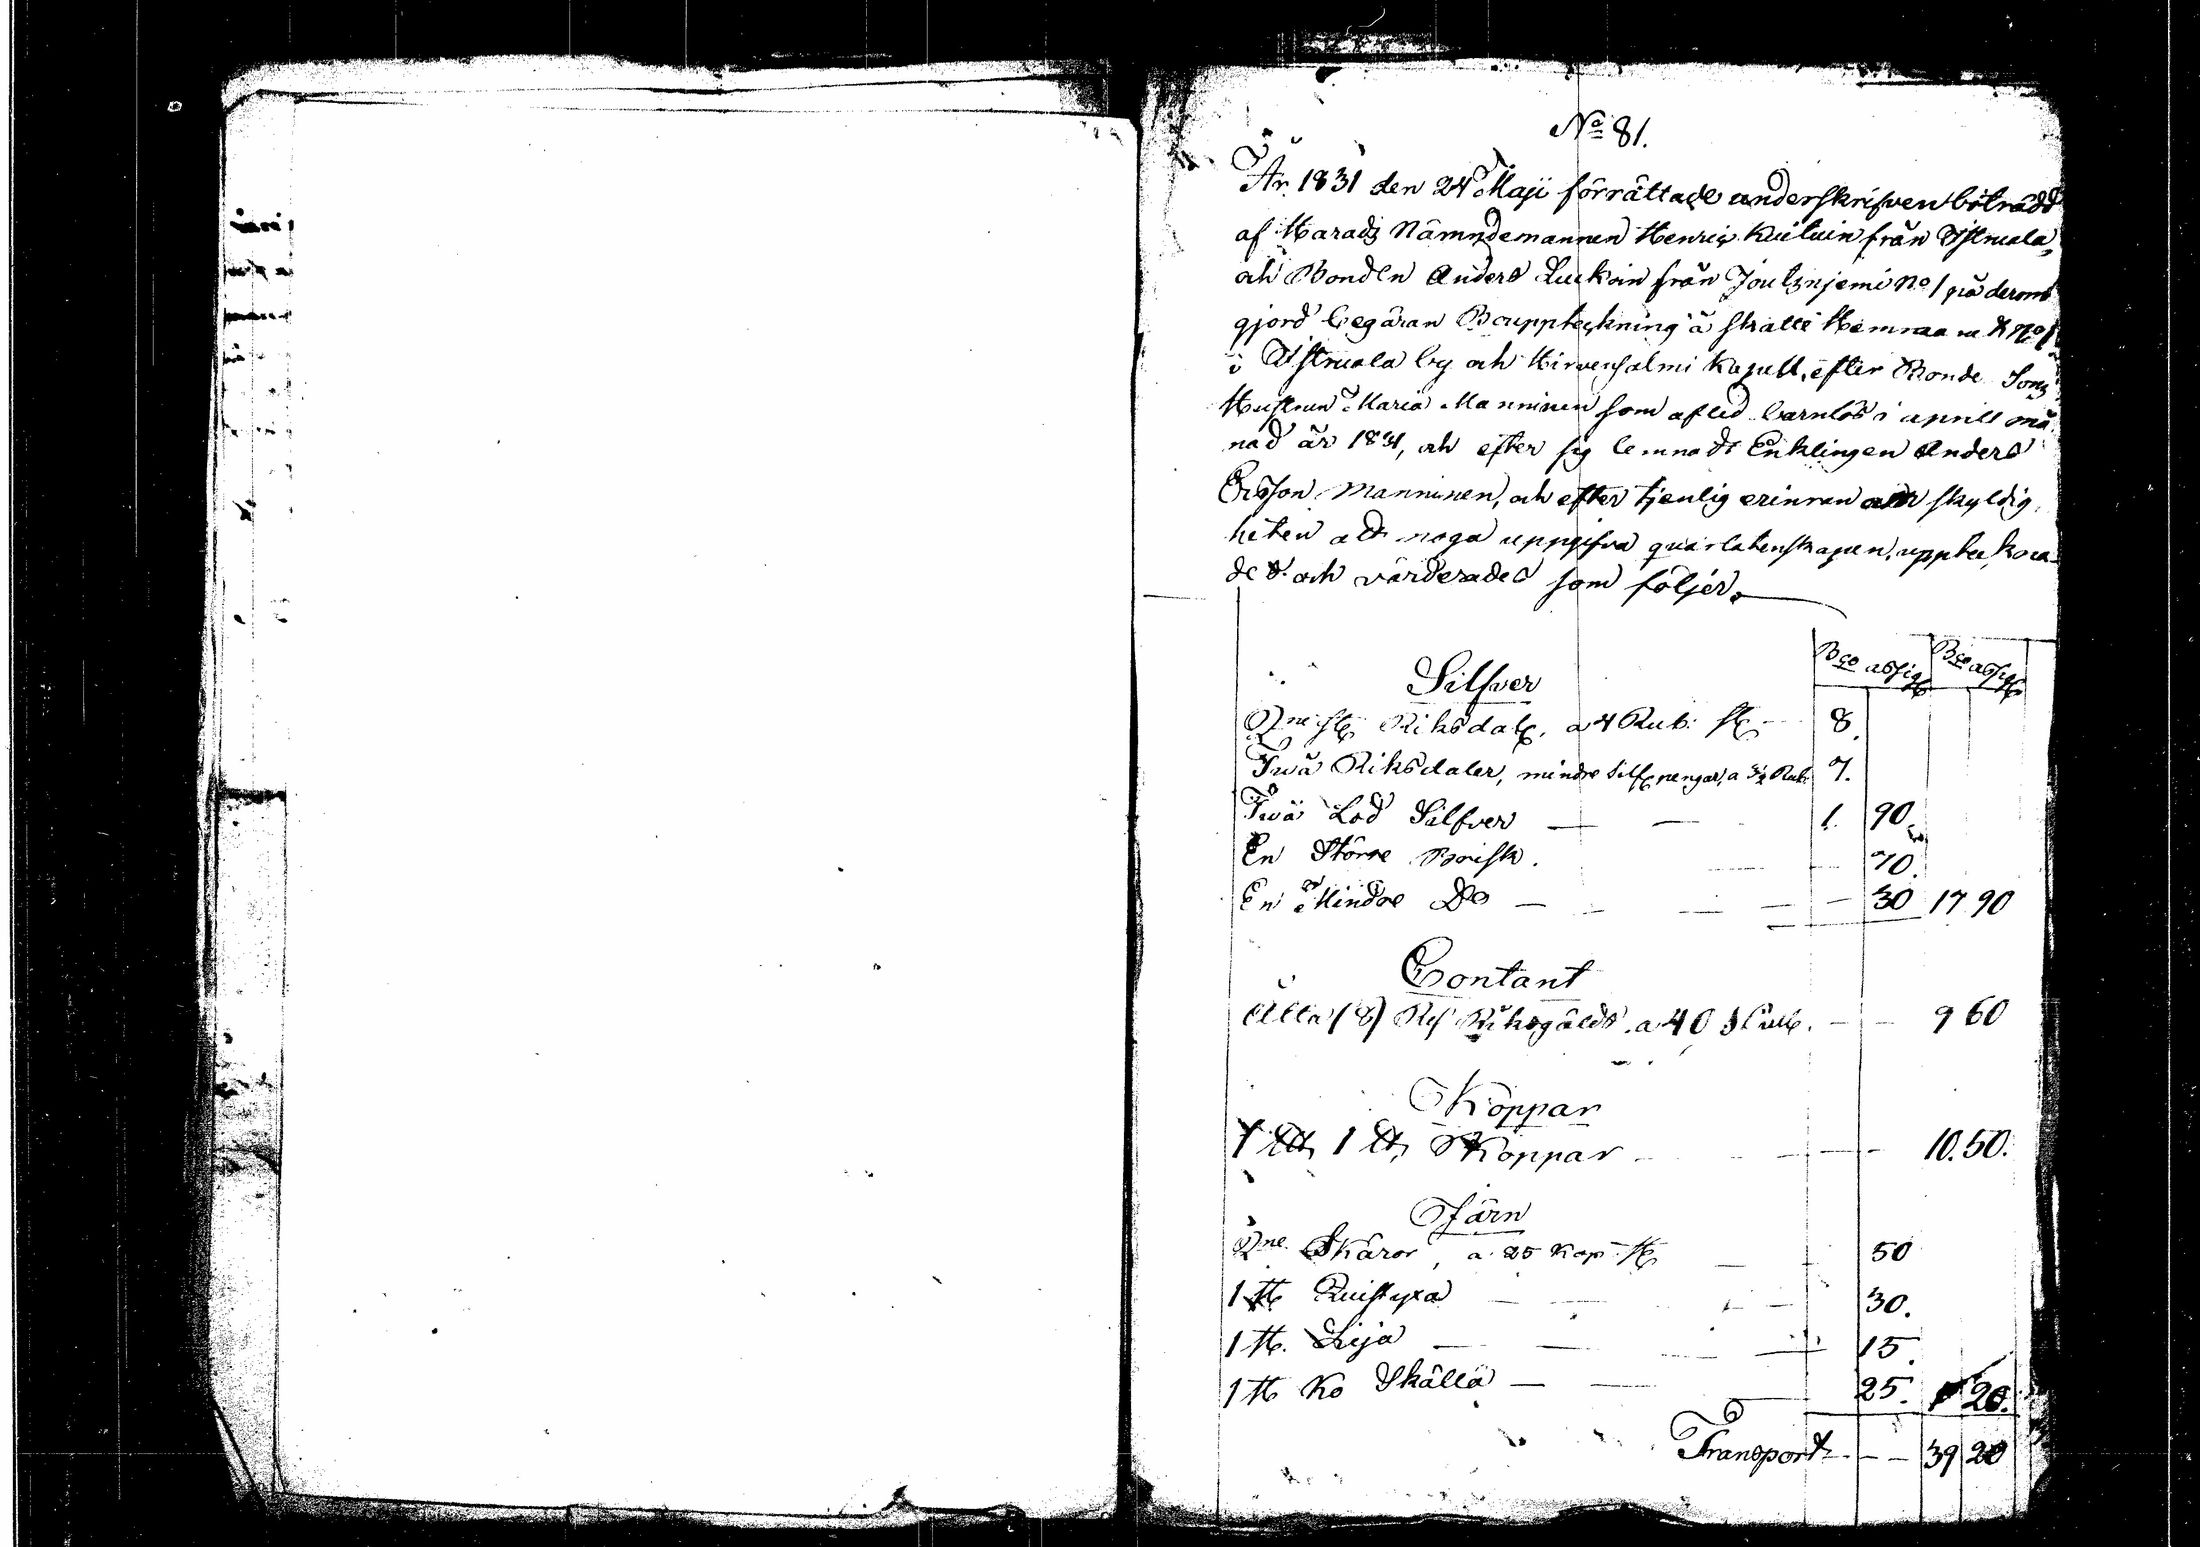 No 81.
År 1831 den 24 Maji förrättade underskrifven biträdd
af Härads Nämndemannen Henric Kuituin från
och Bonden Anders Luckoin från Joutznjemi No 1 på derom
gjord begäran Bouppteckning å skatte Hemma No 1
i by och Hirvensalmi Kapell, efter Bonde Sons
Hustrun Maria Manninen som afled barnlös i aprill må
nad år 1831, och efter sig lemnadt Enklingen Anders
Ersson Manninen, och efter tjenlig erinran om skyldig
heten att noga uppgifva quarlatenskapen, uppteckna
des och värderades som följer.
Bco assig Bco assig
Silfver
2ne st Riksdal. a 4 Rub. st 8.
Två Riksdaler, mindre Silf pengar, a 3½ Rub. 7.
Två Lod Silfver 1. 90
En Större Brisk. 70.
En Mindre Do 30 17 90
Contant
Åtta (8) Rd Riksgälds a 40 9 60
Koppar
1 lb 1 lb Koppar 10.50.
Järn
2ne Skäror, a 25 Kop st 50
1 st yxa 30.
1 st. Lija 15.
1 st Ko Skälla 25. 1 20.
Transport 39 20